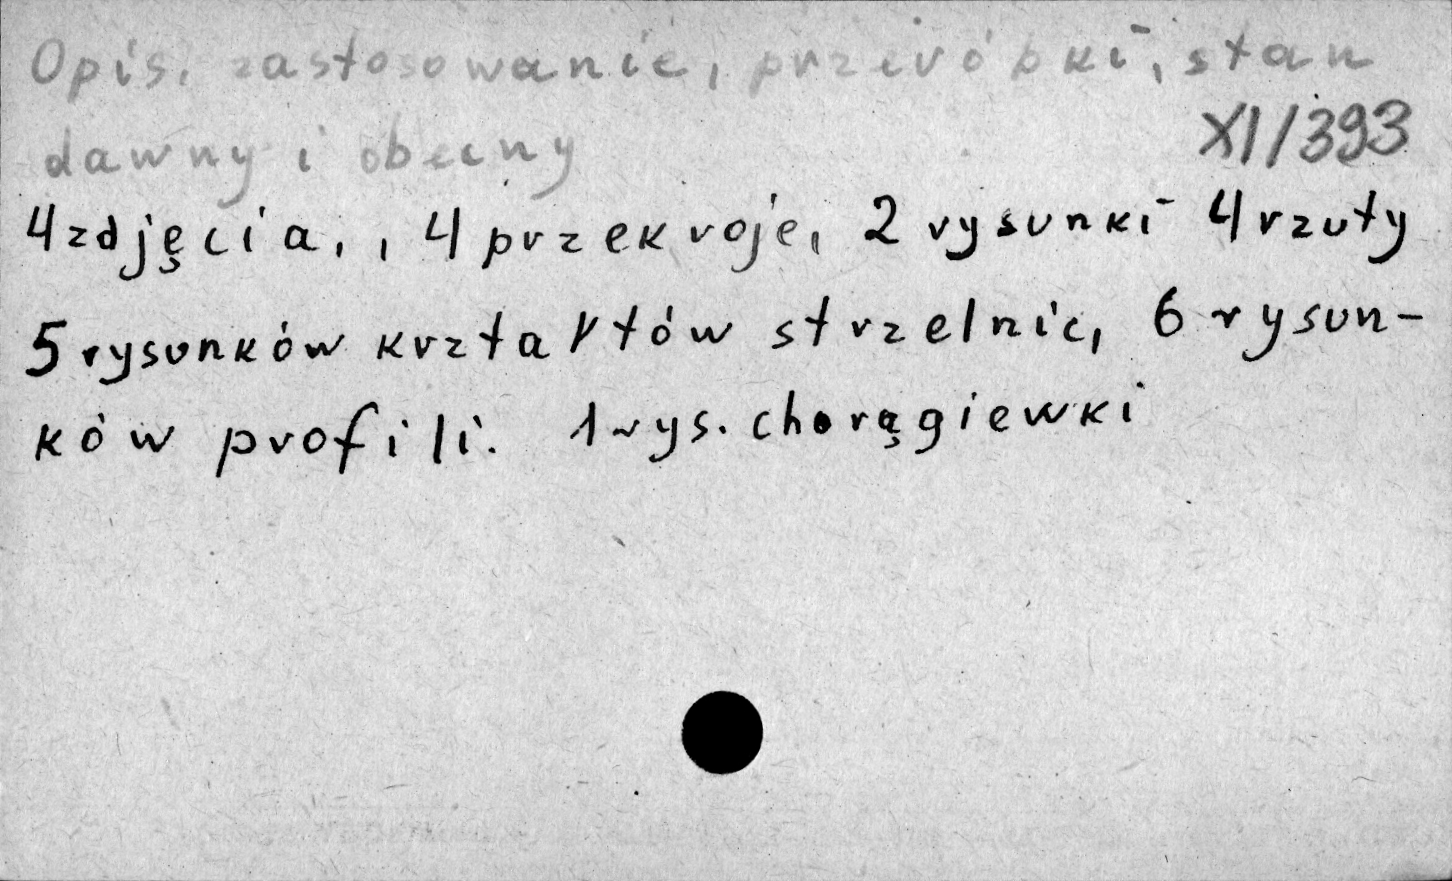 Opis, zastosowanie, przeróbki, stan
XI/393
dawny i obecny
4 zdjęcia, , 4 przekroje, 2 rysunki 4 rzuty
5 rysunków krztałtów strzelnic, 6 rysun-
ków profili. 1 rys. chorągiewki